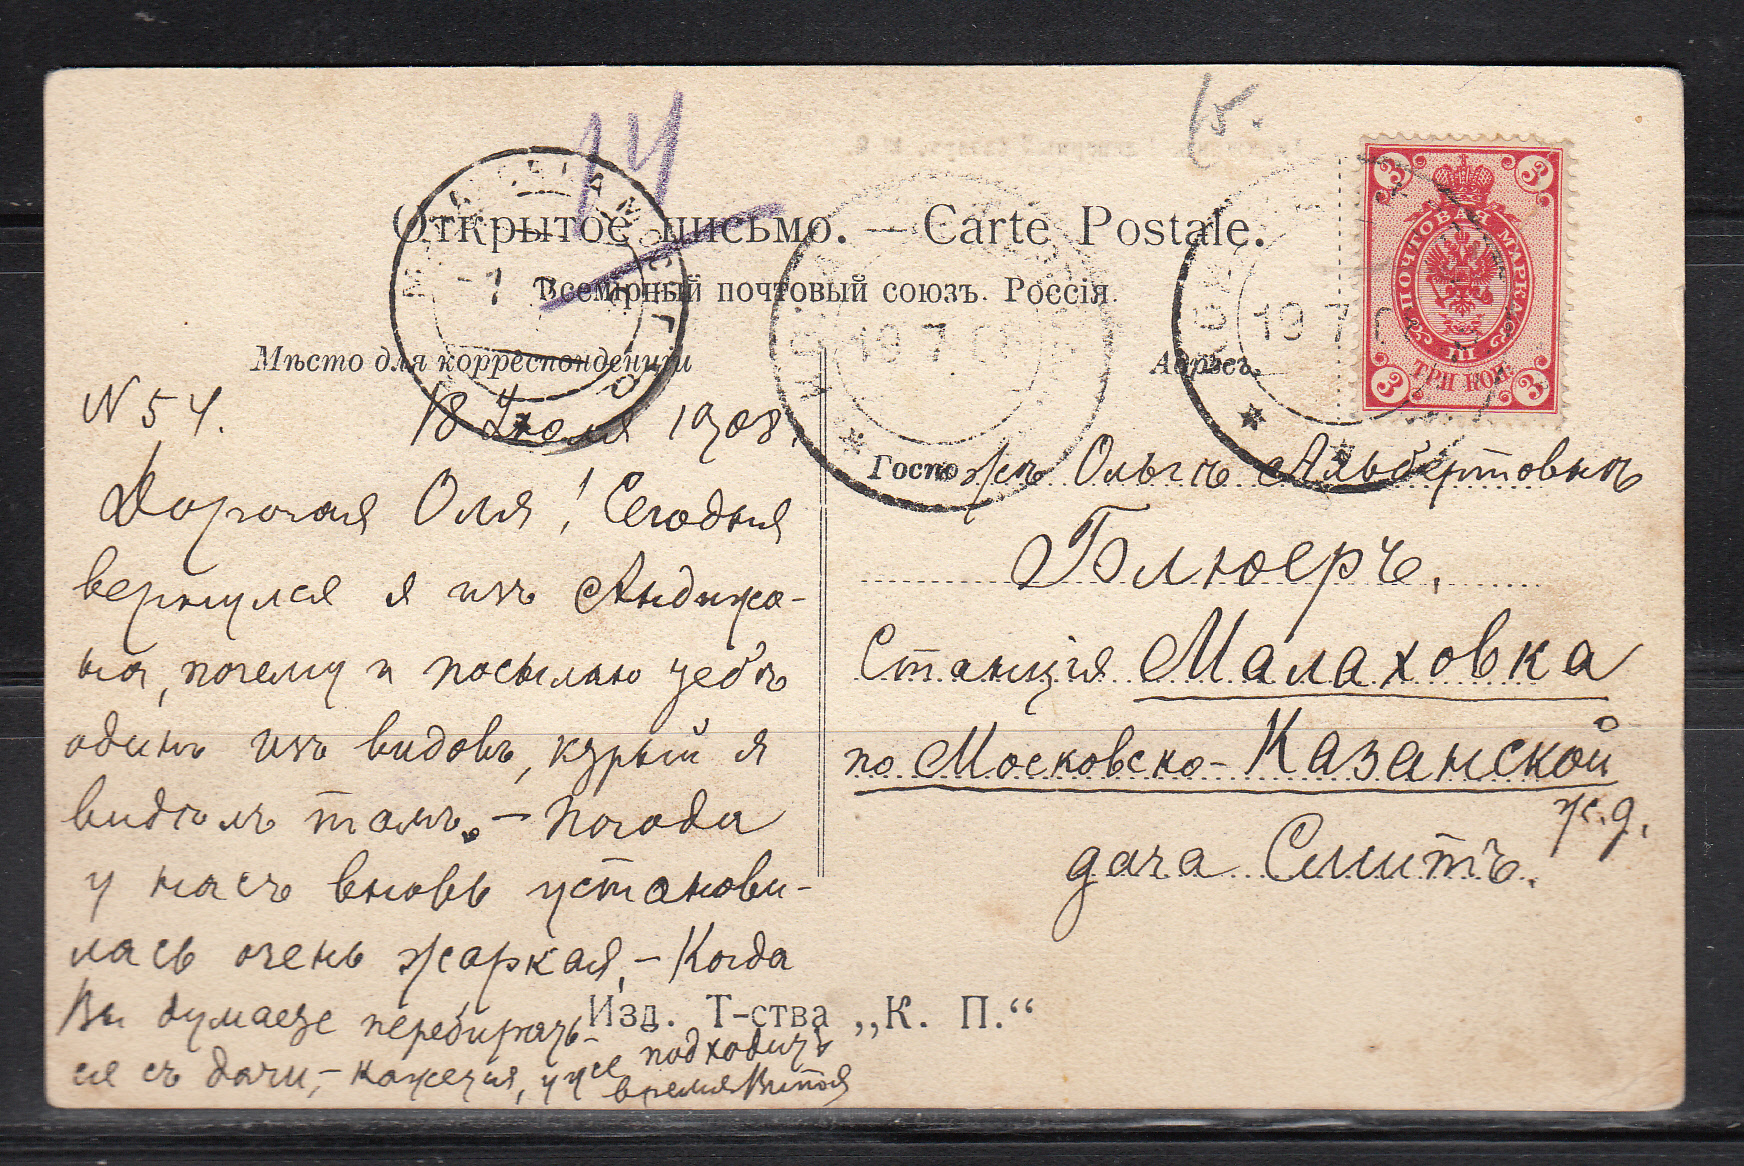 14
Открытое письмо. — Carte Postale.
Всемірный почтовый союзъ. Россія.
Мѣсто для корреспонденціи
Адресъ.
3 3
ПОЧТОВАЯ МАРКА
ТРИ КОП.
3 3
19 7
19 7 0
N 54. 18 Іюля 1908.
Дорогая Оля! Сегодня
вернулся я изъ Андижа-
на, почему и посылаю тебѣ
одинъ изъ видовъ, крый я
видѣлъ тамъ. – Погода
у насъ вновь установи-
лась очень жаркая, – Когда
Вы думаете перебирать-
ся съ дачи, – кажется, уже подходитъ
время Витѣ
Госпожѣ Ольгѣ Альбертовнѣ
Блюеръ.
Станція Малаховка
по Московско-Казанской
ж.д.
дача Смитъ.
Изд. Т-ства „К. П.“